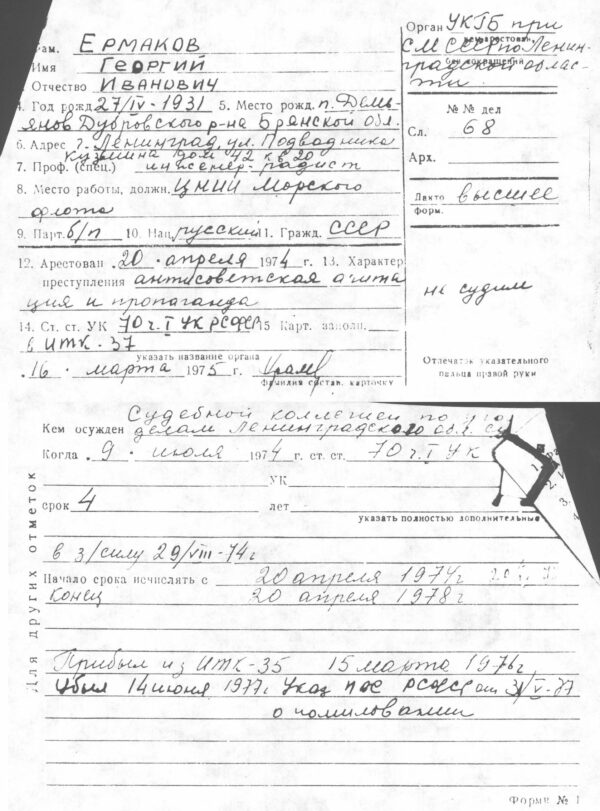 Фам. ЕРМАКОВ
Имя ГЕОРГИЙ
Отчество ИВАНОВИЧ
4. Год рожд. 27/IV-1931 5. Место рожд. п. Демь-
янов Дубровского р-на Брянской обл.
6. Адрес г. Ленинград, ул. Подводника
Кузьмина дом 42 кв 20
7. Проф. (спец.) инженер-радист
8. Место работы, должн. ЦНИИ Морского
флота
9. Парт. б/п 10. Нац. русский 11. Гражд. СССР
12. Арестован „20" апреля 1974 г. 13. Характер
преступления антисоветская агита
ция и пропаганда
14. Ст. ст. УК 70 ч. I УК РСФСР 15 Карт. заполн.
в ИТК-37
указать название органа
„16" марта 1975 г.
Фамилия состав. карточку
Орган УКГБ при
СМ СССР по Ленин-
градской облас-
ти
без сокращений
№ № дел
Сл. 68
Арх.
Дакто форм. высшее
не судим
Отпечаток указательного
пальца правой руки
Судебной коллегией по
Кем осужден делам Ленинградского обл. су
Когда „9" июля 1974 г. ст. ст. 70 ч. I УК
УК
срок 4 лет
указать полностью дополнительные
в з/силу 29/VIII-74 г
Начало срока исчислять с 20 апреля 1974 г
Конец 20 апреля 1978 г
Прибыл из ИТК-35 15 марта 1976 г,
Убыл 14 июня 1977 г. Указ ПВС РСФСР от 31/V-77
о помиловании
Для других отметок
Форма № 1